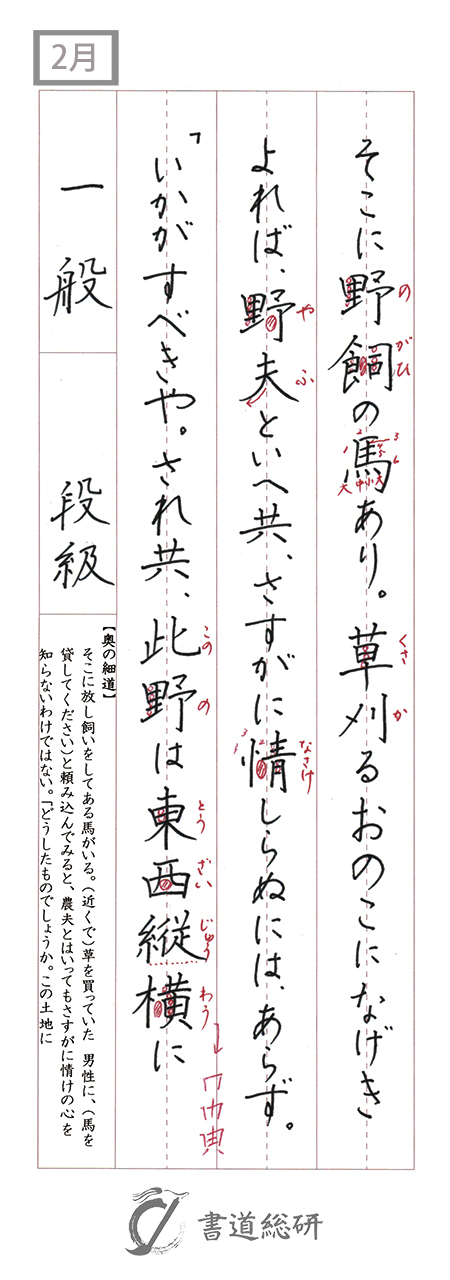 2月
そこに野飼の馬あり。草刈るおのこになげき
の がひ くさ か
よれば、野夫といへ共、さすがに情しらぬには、あらず。
や ふ なさけ
「いかがすべきや。され共、此野は東西縦横に
この の とう ざい じゅう わう
一般 段級
【奥の細道】
そこに放し飼いをしてある馬がいる。（近くで）草を買っていた 男性に、（馬を
貸してください）と頼み込んでみると、農夫とはいってもさすがに情けの心を
知らないわけではない。「どうしたものでしょうか。この土地に
書道総研